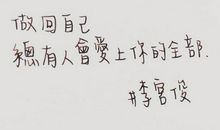 做回自己
總有人會愛上你的全部.
#李宮俊